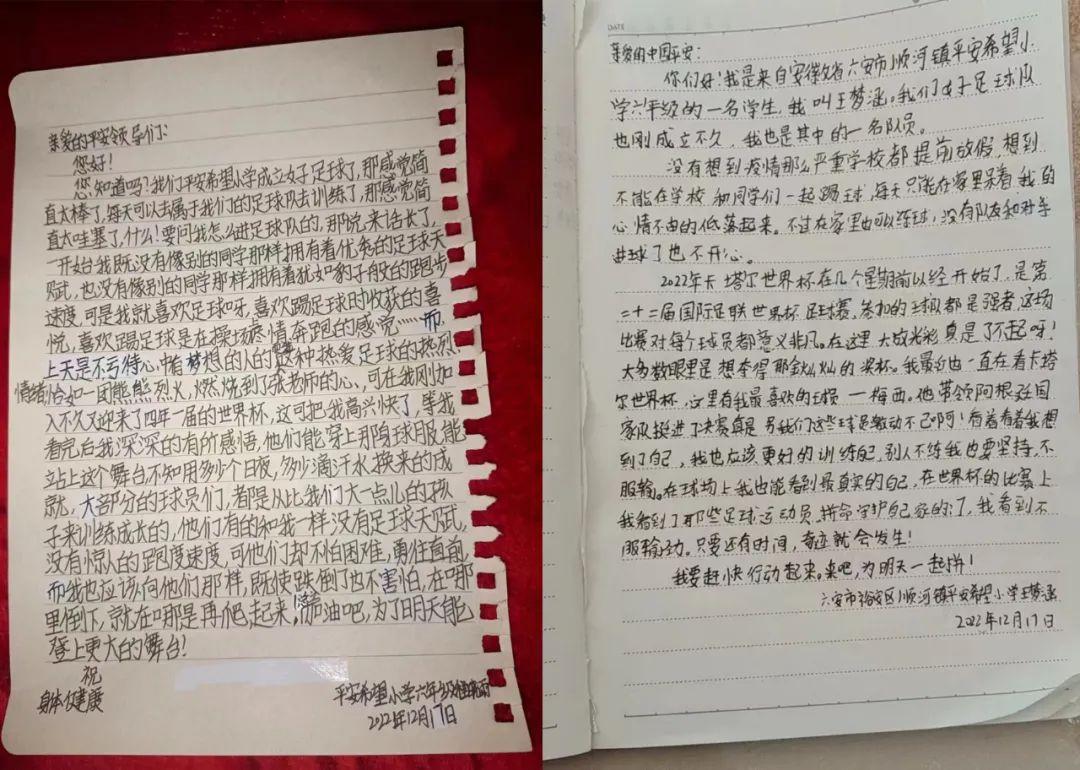 亲爱的平安领导们：
您好！
您知道吗？我们平安希望小学成立女子足球了，那感觉简
直太棒了，每天可以去属于我们的足球队去训练了，那感觉简
直太哇塞了，什么！要问我怎么进足球队的，那说来话长了，
一开始我既没有像别的同学那样拥有着优秀的足球天
赋，也没有像别的同学那样拥有着犹如豹子有效的跑步
速度，可是我就喜欢足球呀，喜欢踢足球时收获的喜
悦，喜欢踢足球是在操场疼情奔跑的感觉……而
上天是不亏待心中有梦想的人的这种热爱足球的热烈
情绪恰如一团熊熊烈火，燃烧到了张老师的心、可在我刚加
入不久又迎来了四年一届的世界杯，这可把我高兴快了，等我
看完后我深深的有的感悟，他们能穿上那身球服，能
站上这个舞台不知用多少个日夜，多少滴汗水换来的成
就，大部分的球员们，都是从比我们大一点儿的孩
子来训练成长的，他们有的和我一样没有足球天赋，
没有惊人的跑度速度，可他们却不怕困难，勇往直前
而我也应该向他们那样，既使跌倒了也不害怕，在哪
里倒下，就在哪是再爬起来，加油吧，为了明天能
登上更大的舞台！
祝
身体健康
平安希望小学六年级
2022年12月17日
DATE
亲爱的中国平安：
你们好！我是来自安徽省六安市顺河镇平安希望小
学六年级的一名学生，我叫王梦涵。我们女子足球队
也刚成立不久，我也是其中的一名队员。
没有想到疫情那么严重学校都提前放假，想到
不能在学校和同学们一起踢球，每天只能在家里呆着我的
心情不由的低落起来。不过在家里也可以练球，没有队友和对手
进球了也不开心。
2022年卡塔尔世界杯在几个星期前以经开始了，是第
二十二届国际足联世界杯足球赛。参加的球队都是强者，这场
比赛对每个球员都意义非凡。在这里大放光彩真是了不起呀！
大多数眼里是想夺得那金灿灿的奖杯。我最近也一直在看卡塔
尔世界杯，这里有我最喜欢的球员一梅西。他带领阿根廷国
家队挺进了决赛真是另我们这些球迷激动不已啊！看着看着我想
到了自己，我也应该更好的训练自己，别人不练我也要坚持，不
服输。在球场上我也能看到最真实的自己，在世界杯的比赛上
我看到了那些足球运动员，拼命守护自己家的门，我看到不
服输劲。只要还有时间，奇迹就会发生！
我要赶快行动起来。来吧，为明天一起拼！
六安市裕安区顺河镇平安希望小学王梦涵
2022年12月17日